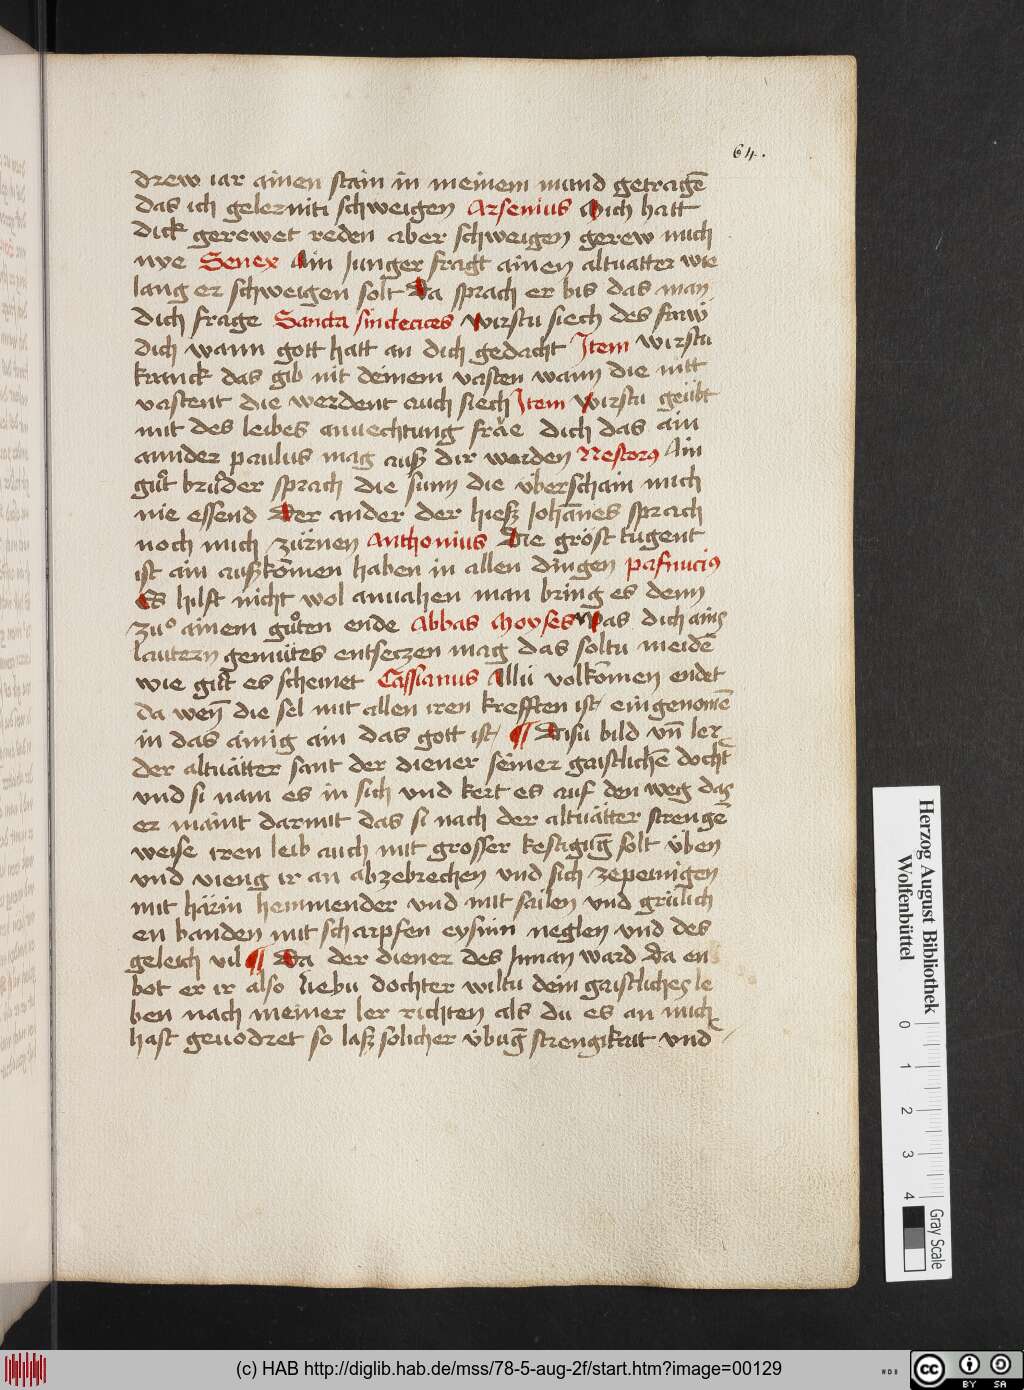 64.
drew iar ainen stain in meinem mund getragē
das ich gelerniti schweigen Arsenius Mich hatt
dick gerewet reden aber schweigen gerew mich
nye Senex Ain Junger fragt ainen altuatter wie
lang er schweigen solt Da sprach er bis das man
dich frage Sancta sindeetices wirstu siech des fraẅ
dich wann gott hatt an dich gedacht Item wirstu
kranck das gib nit deinem vasten wann die nitt
vastent die werdent auch siech Item wirstu geübt
mit des leibes anuechtung fräe dich das ain
annder paulus mag auß dir werden Nestorꝯ Ain
gůt brůder sprach die sunn die überschain mich
nie essend Der ander der hieß Johānes sprach
noch mich zürnen Anthonius Die gröst tugent
ist ain außkōmen haben in allen dingen pafnuciꝯ
Es hilft nicht wol anuahen man bring es denn
zuͦ ainem gůten ende Abbas Moyses Was dich ains
lautern gemütes entseczen mag das soltu meidē
wie gůt es scheinet Cassianus Allü volkōmen endet
da weñ die sel mit allen iren krefften ist eingenomē
in das ainig ain das gott ist ¶ Disü bild vn̄ ler
der altuätter sant der diener seiner gaistlichē docht
vnd si nam es in sich vnd kert es auf den weg das
er maint darmit das si nach der altuätter strengē
weise iren leib auch mit grosser kestigūg solt üben
vnd vieng ir an abzebrechen vnd sich zepeinigen
mit härin hemmender vnd mit sailen vnd grülich
en banden mit scharpfen eysnin neglen vnd des
geleich vil ¶ Da der diener des Innan ward Da en
bot er ir also Liebu dochter wiltu dein gaistliches le
ben nach meiner ler richten als du es an mich
hast geuodret so laß solicher übūg strengikait vnd
Herzog August Bibliothek
Wolfenbüttel
0 1 2 3 4
Gray Scale
(c) HAB http://diglib.hab.de/mss/78-5-aug-2f/start.htm?image=00129
WDB
cc BY SA